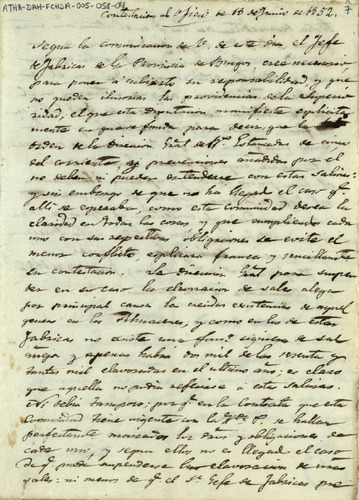 ATHA-DAH-FCHDA-005-051-04
Contestacion al oficio de 18 de Junio de 1852.
7
Segun la comunicacion de V. de este dia el Jefe
de Fabricas de la Provincia de Burgos cree necesario
para poner a cubierto su responsabilidad y que
no queden ilusorias las providencias de la Superio
ridad, el que esta Diputacion manifieste esplicita
mente en que se funda para decir que la
orden de la Direccion Gral de Estancadas de
del corriente, y prevenciones anadidas por el
no deben ni pueden entenderse con estas Salinas:
y sin embargo de que no ha llegado el caso qe.
alli se espresaba, como esta comunidad desea la
claridad en todas las cosas y que cumpliendo cada
uno con sus respectivas obligaciones se evite el
menor conflicto, esplicara franca y sencillamente
en contestacion. La Direccion Gral para suspen
der en su caso la elavoracion de sales alega
por principal causa la crecida existencia de aquel
genero en los Almacenes, y como en los de estas
Fabricas no existe una fanega siquiera de sal
vieja y apenas habra dos mil de las sesenta y
tantas mil elavoradas en el ultimo año; es claro
que aquella no podia referirse a estas Salinas.
Ni debia tampoco; por qe. en la Contrata que esta
Comunidad tiene vigente con la Hda. P. se hallan
perfectamente marcados los dros y obligaciones de
cada uno, y segun ellos no es llegado el caso
de qe. puede suspenderse la elavoracion de unas
sales: ni menos de qe. el Sr. Jefe de Fabricas pre